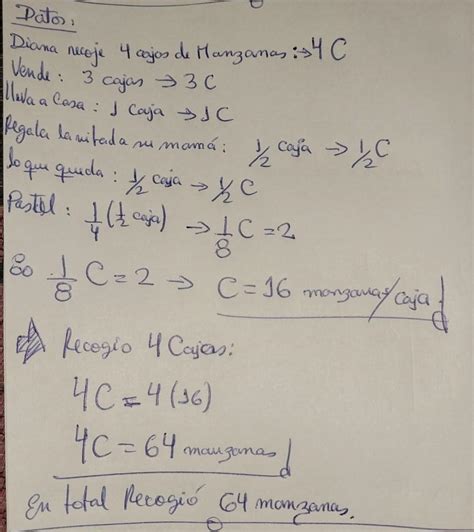 Datos:
Diana recoje 4 cajas de Manzanas: → 4C
Vende: 3 cajas → 3C
lleva a Casa: 1 Caja → 1C
Regala la mitad a su mamá: 1/2 caja → 1/2 C
lo que queda: 1/2 caja → 1/2 C
Pastel: 1/4 (1/2 caja) → 1/8 C = 2
1/8 C = 2 → C = 16 manzanas/caja
⇒ Recogio 4 Cajas:
4C = 4 (16)
4C = 64 manzanas
En total Recogió 64 manzanas.